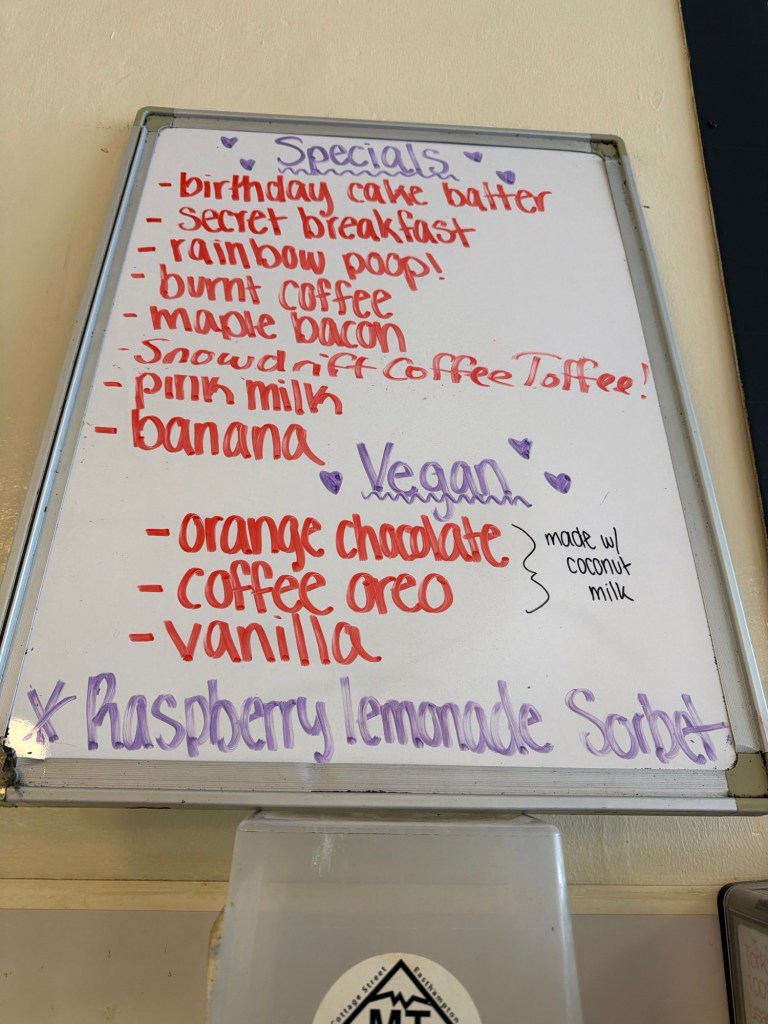 Specials
- birthday cake batter
- secret breakfast
- rainbow poop!
- burnt coffee
- maple bacon
- Snowdrift Coffee Toffee!
- pink milk
- banana
Vegan
- orange chocolate
- coffee oreo
- vanilla
made w/
coconut
milk
* Raspberry lemonade Sorbet
Cottage Street Easthampton
MT